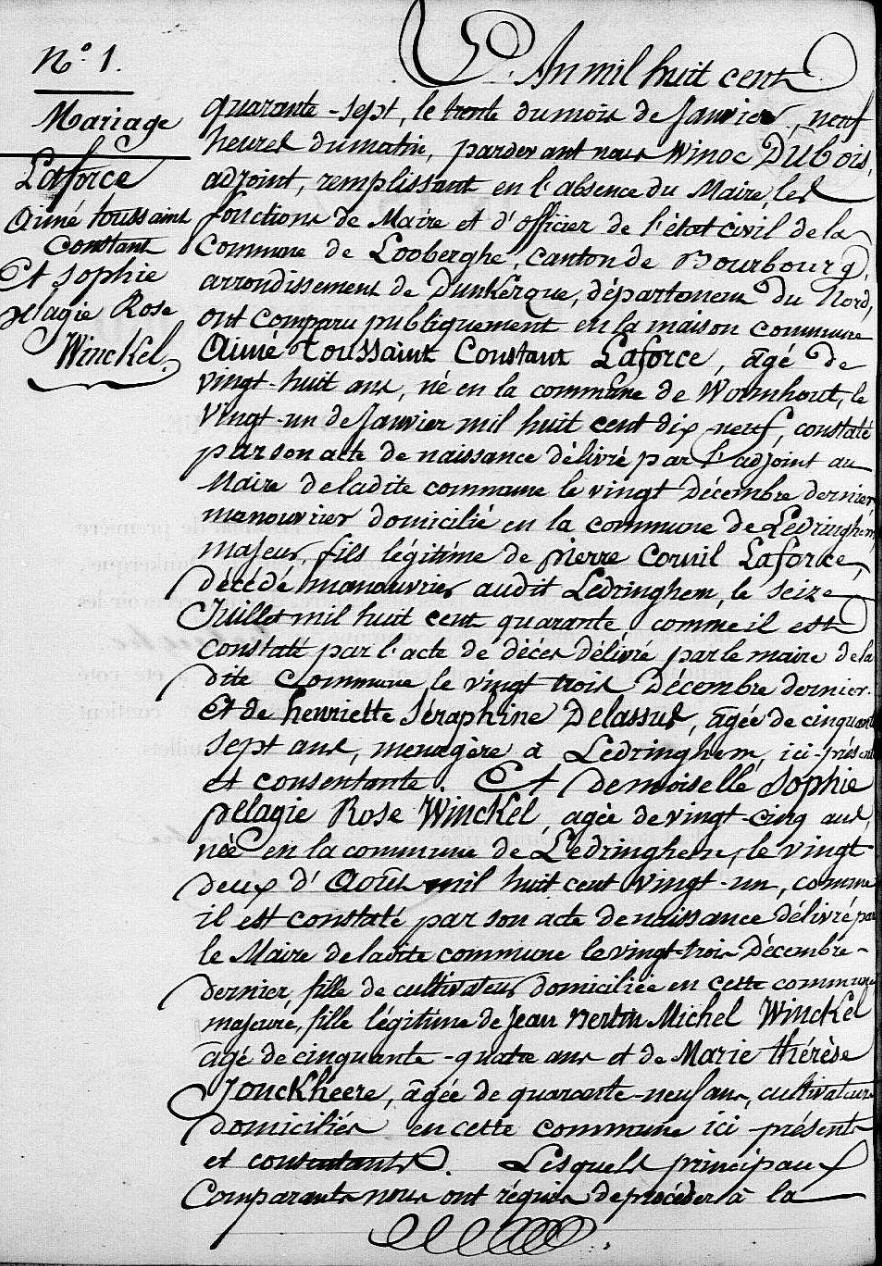 N.° 1.
Mariage
Laforce
Aimé toussaint
Constant
Et Sophie
pélagie Rose
Winckel.
L'An mil huit cent
quarante-sept, le trente du mois de Janvier, neuf
heures du matin, pardevant nous Winoc Dubois,
adjoint, remplissant en l'absence du Maire, les
fonctions de Maire et d'officier de l'état civil de la
Commune de Looberghe, canton de Bourbourg,
arrondissement de Dunkerque, département du Nord,
ont comparu publiquement en la maison commune
Aimé Toussaint Constant Laforce, âgé de
vingt-huit ans, né en la commune de Wormhout, le
vingt-un de Janvier mil huit cent dix neuf, constaté
par son acte de naissance délivré par l'adjoint au
Maire de ladite commune le vingt Décembre dernier
manouvrier domicilié en la commune de Ledringhem,
majeur, fils légitime de pierre Cornil Laforce,
décédé manouvrier audit Ledringhem, le seize
Juillet mil huit cent quarante comme il est
constaté par l'acte de décès délivré par le maire de la
dite Commune, le vingt trois Décembre dernier.
Et de henriette Séraphine Delassus, âgée de cinquante
sept ans, menagère à Ledringhem, ici-présente
et consentante. Et Demoiselle Sophie
pélagie Rose Winckel, agée de vingt-cinq ans,
née en la commune de Ledringhem, le vingt
deux d'Août mil huit cent vingt-un, comme
il est constaté par son acte de naissance délivré par
le Maire de ladite commune le vingt-trois Décembre
dernier, fille de cultivateur domiciliée en cette commune
majeure, fille légitime de Jean Bertin Michel Winckel
âgé de cinquante-quatre ans et de Marie thérèse
Jonckheere, âgée de quarante-neuf ans, cultivateurs
domiciliés en cette commune ici-présents
et consentants. Lesquels principaux
Comparants nous ont réquis de procéder à la